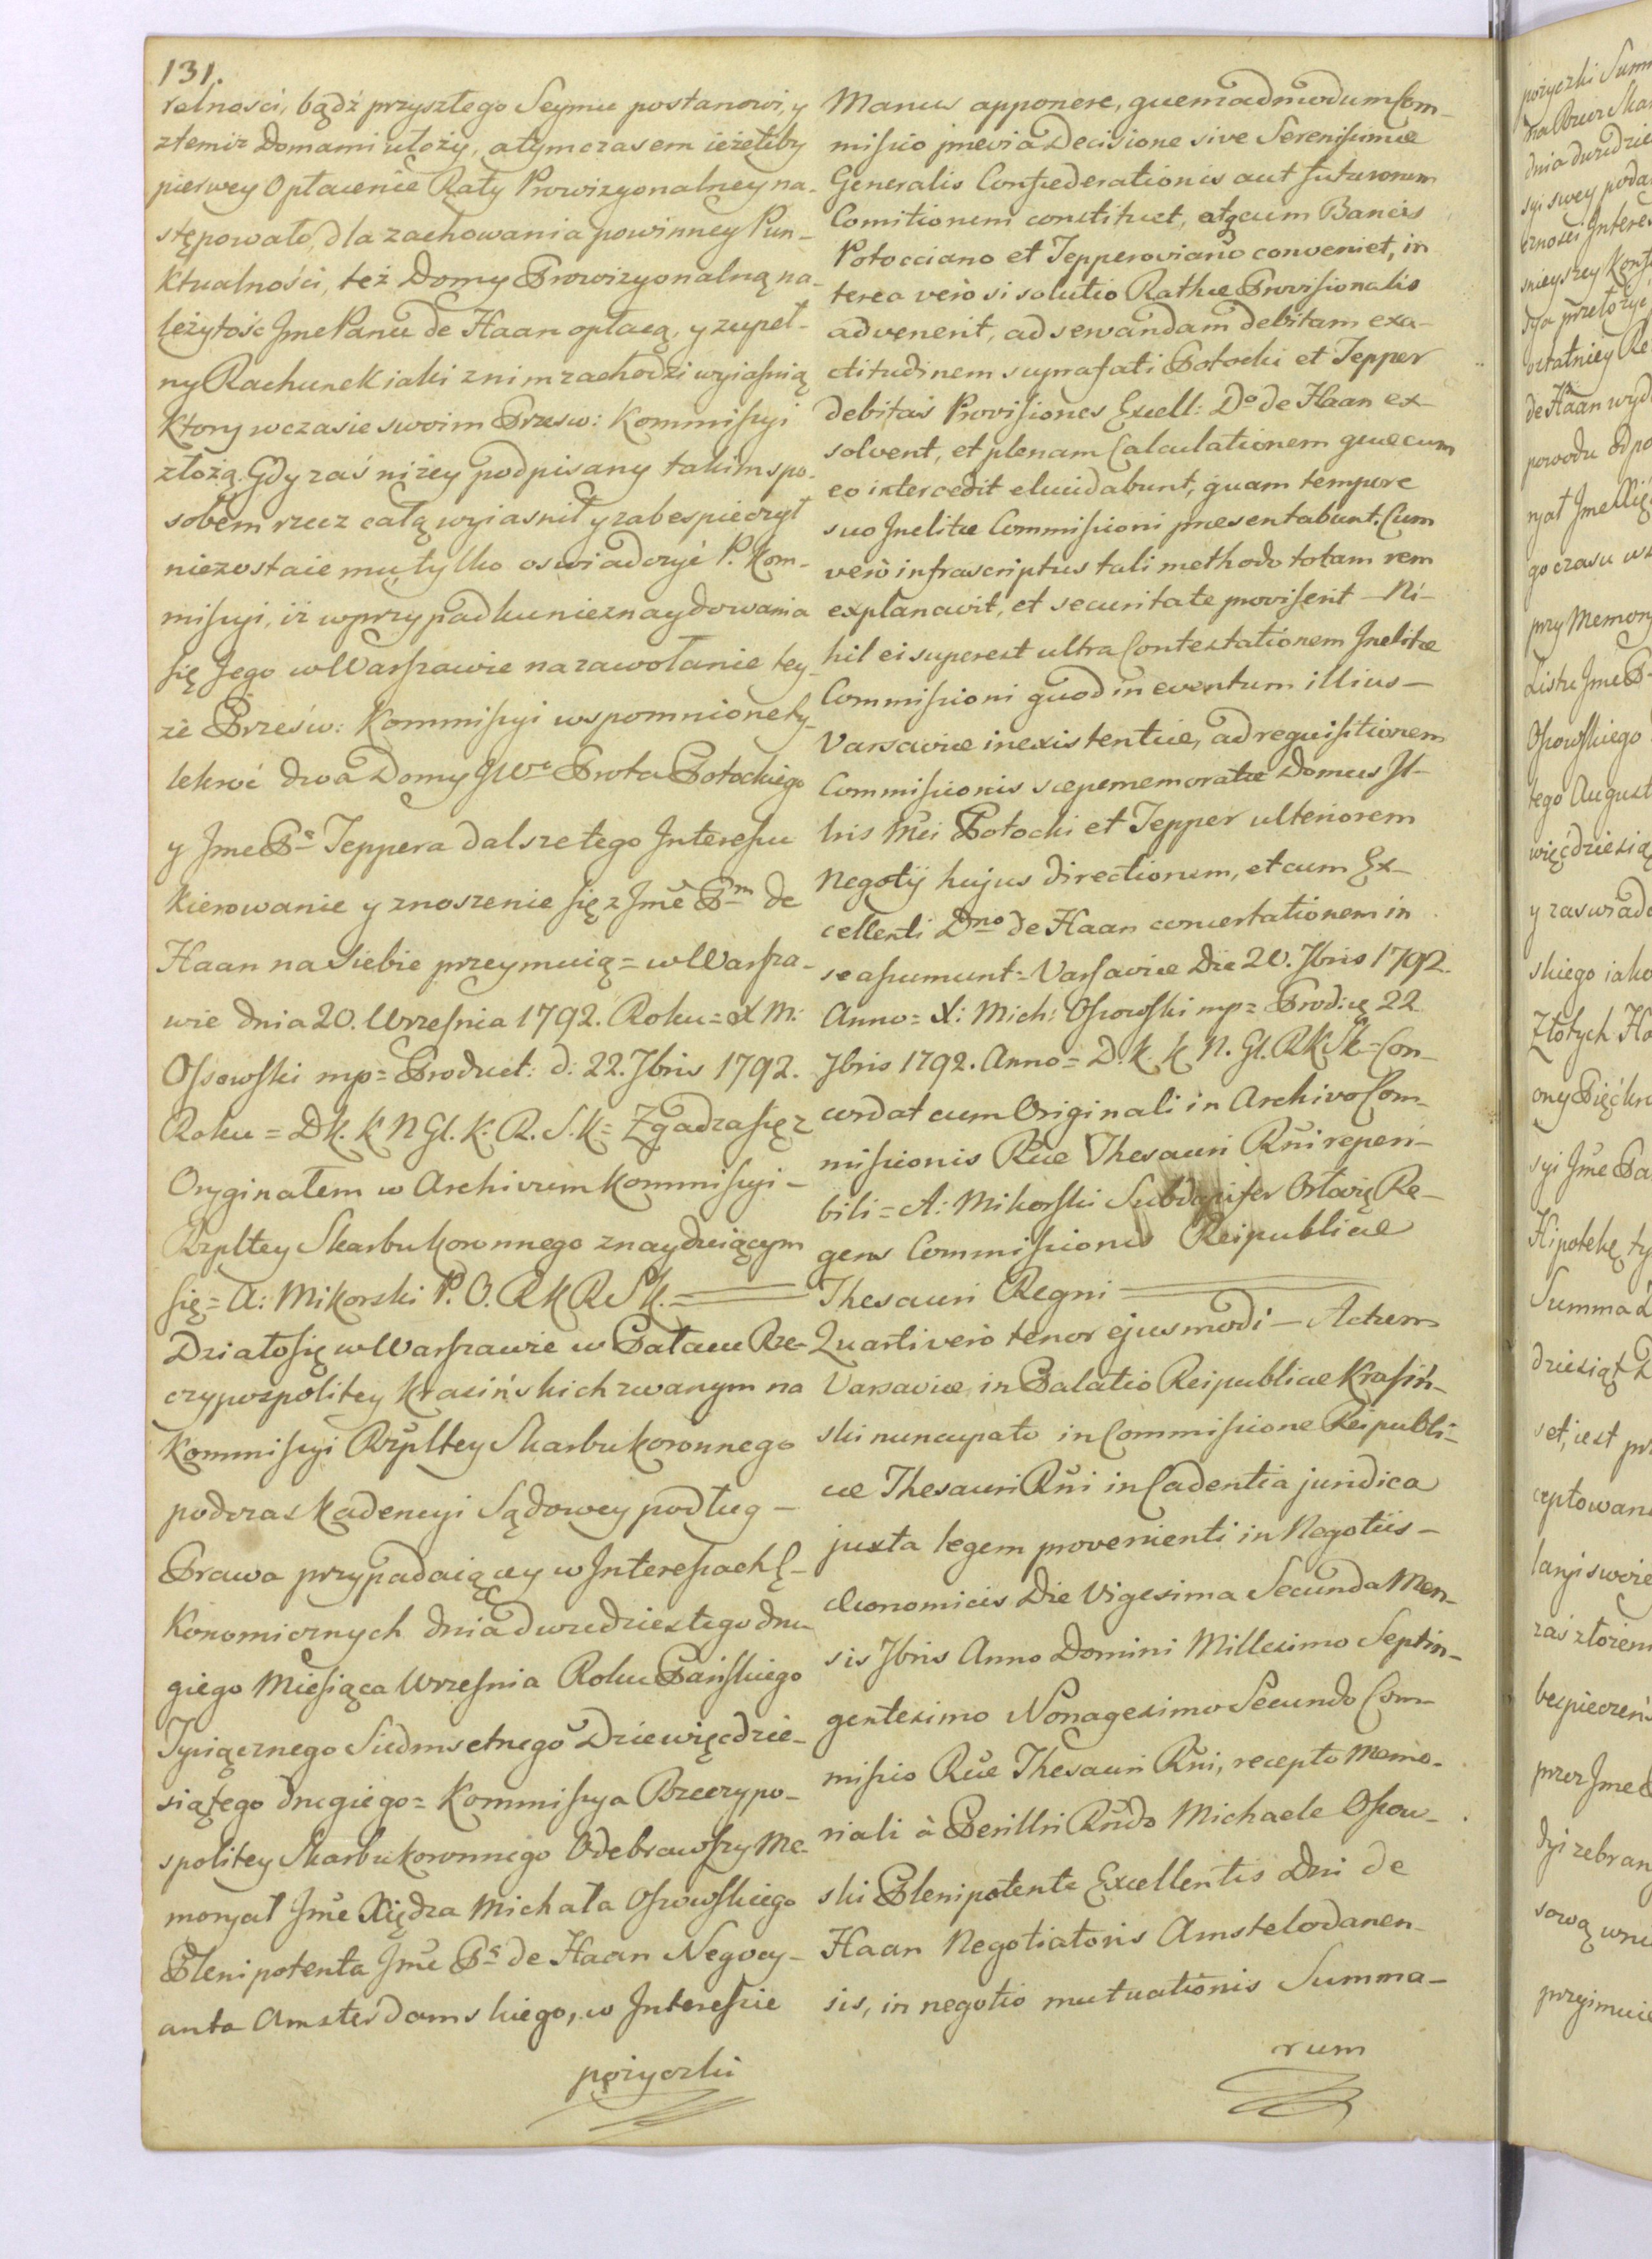 131.
ralności, bądź przyszłego Seymu postanowi, y
ztemiż Domami ułoży, a tymczasem ieżeliby
pierwey Opłacenie Raty Prowizyonalney na-
stępowało, dla zachowania powinney Pun-
ktualności, też Domy Prowizyonalną na-
leżytość Jme Panu de Haan opłacą, y zupeł-
ny Rachunek iaki znim zachodzi wyiaśnią
Ktory wczasie swoim Prześw: Kommissyi
złożą. Gdy zaś niżey podpisany takim spo-
sobem rzecz całą wyiasnił y zabespieczył
niezostaie mu tylko oswiadczyć P. Kom-
missyi, iż wprzypadku nieznaydowania
się Jego w Warszawie na zawołanie tey-
że Prześw: Kommissyi wspomnione ty-
lekroć dwa Domy JWo Prota Potockiego
y Jme Pa Teppera dalsze tego Interessu
Kierowanie y znoszenie się z Jmě Pm de
Haan na siebie przeymuią = w Warsza-
wie dnia 20. Września 1792. Roku = X M:
Ossowski mp = Product: d: 22. 7bris 1792.
Roku = D k. K N Gl. K. R. S. K = Zgadza się z
Oryginałem w Archivum Kommissyi -
Rzpltey Skarbu Koronnego znayduiącym
się = A: Mikorski P. O. R K R S K. =
Działo się w Warszawie w Pałacu Rze-
czypospolitey Krasińskich zwanym na
Kommissyi Rzpltey Skarbu Koronnego
podczas Kadencyi Sądowey podług -
Prawa przypadaiącey w Interessach E-
Konomicznych dnia dwudziestego dru-
giego Miesiąca Września Roku Pańskiego
Tysiącznego Siedmsetnego Dziewięcdzie-
siątego drugiego = Kommissya Rzeczypo-
spolitey Skarbu Koronnego Odebrawszy Me-
moryał Jmě Xiędza Michała Ossowskiego
Plenipotenta Jmě Pa de Haan Negocy-
anta Amsterdamskiego, w Interessie
pożyczki
Manus apponere, quemadmodum Com-
missio praevia Decisione sive Serenissimae
Generalis Confaederationis aut futurorum
Comitiorum constituet, atq cum Bancis
Potocciano et Tepperoviano conveniet, in
terea vero si solutio Rathae Provisionalis
advenerit, ad servandam debitam exa-
ctitudinem suprafati Potocki et Tepper
debitas Provisiones Excell: Do de Haan ex-
solvent, et plenam Calculationem quae cum
eo intercedit elucidabunt, quam tempore
suo Inclitae Commissioni praesentabunt. Cum
verò infrascriptus tali methodo totam rem
explanavit, et securitate proviserit - Ni-
hil ei superest ultra Contestationem Inclitae
Commissioni quod in eventum illius -
Varsaviae inexistentiae, ad requisitionem
Commissionis saepememoratae Domus Il-
lris Mci Potocki et Tepper ulteriorem
Negotij hujus directionem, et cum Ex-
cellenti Dno de Haan concertationem in
se assumunt = Varsaviae Die 20. 7bris 1792.
Anno = X: Mich: Ossowski mp = Prod: ię 22
7bris 1792. Anno = D. k. K N. Gl. R K Sk = Con-
cordat cum Originali in Archivo Com-
missionis Rae Thesauri Rňi reperi-
bili = A: Mikorski Subdapifer Orłovię Re-
gens Commissionis Reipublicae
Thesauri Regni
Quarti verò tenor ejusmodi - Actum
Varsaviae in Palatio Reipublicae Krasiń-
ski nuncupato in Commissione Reipubli-
cae Thesauri Rňi in Cadentia juridica
juxta legem provenienti in Negotiis -
Oeconomicis Die Vigesima Secunda Men-
sis 7bris Anno Domini Millesimo Septin-
gentesimo Nonagesimo Secundo Com-
missio Rae Thesauri Rňi, recepto Memo-
riali à Perillri Rňdo Michaele Ossow-
ski Plenipotente Excellentis Dni de
Haan Negotiatoris Amstelodanen-
sis, in negotio mutuationis Summa-
rum